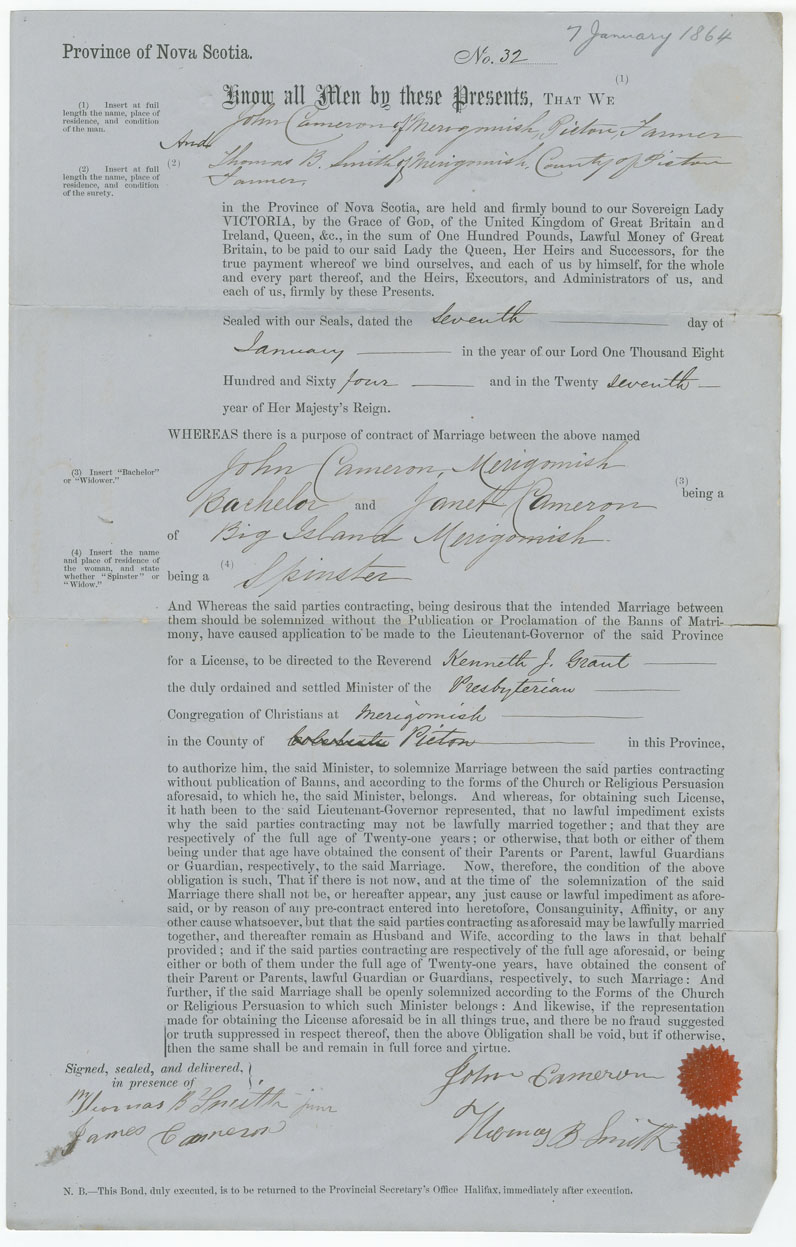 7 January 1864
Province of Nova Scotia.
No. 32
Know all Men by these Presents, THAT WE (1)
(1) Insert at full
length the name, place of
residence, and condition
of the man.
John Cameron of Merigomish, Picton, Farmer
And
(2) Thomas B. Smith of Merigomish, County of Picton
Farmer,
(2) Insert at full
length the name, place of
residence, and condition
of the surety.
in the Province of Nova Scotia, are held and firmly bound to our Sovereign Lady
VICTORIA, by the Grace of GOD, of the United Kingdom of Great Britain and
Ireland, Queen, &c., in the sum of One Hundred Pounds, Lawful Money of Great
Britain, to be paid to our said Lady the Queen, Her Heirs and Successors, for the
true payment whereof we bind ourselves, and each of us by himself, for the whole
and every part thereof, and the Heirs, Executors, and Administrators of us, and
each of us, firmly by these Presents.
Sealed with our Seals, dated the seventh day of
January in the year of our Lord One Thousand Eight
Hundred and Sixty four and in the Twenty seventh
year of Her Majesty's Reign.
WHEREAS there is a purpose of contract of Marriage between the above named
John Cameron, Merigomish
(3) Insert "Bachelor"
or "Widower."
(3) being a
Bachelor and Janet Cameron
of Big Island Merigomish
(4) Insert the name
and place of residence of
the woman, and state
whether "Spinster" or
"Widow."
being a (4) Spinster
And Whereas the said parties contracting, being desirous that the intended Marriage between
them should be solemnized without the Publication or Proclamation of the Banns of Matri-
mony, have caused application to be made to the Lieutenant-Governor of the said Province
for a License, to be directed to the Reverend Kenneth J. Grant
the duly ordained and settled Minister of the Presbyterian
Congregation of Christians at Merigomish
in the County of Picton in this Province,
to authorize him, the said Minister, to solemnize Marriage between the said parties contracting
without publication of Banns, and according to the forms of the Church or Religious Persuasion
aforesaid, to which he, the said Minister, belongs. And whereas, for obtaining such License,
it hath been to the said Lieutenant-Governor represented, that no lawful impediment exists
why the said parties contracting may not be lawfully married together; and that they are
respectively of the full age of Twenty-one years; or otherwise, that both or either of them
being under that age have obtained the consent of their Parents or Parent, lawful Guardians
or Guardian, respectively, to the said Marriage. Now, therefore, the condition of the above
obligation is such, That if there is not now, and at the time of the solemnization of the said
Marriage there shall not be, or hereafter appear, any just cause or lawful impediment as afore-
said, or by reason of any pre-contract entered into heretofore, Consanguinity, Affinity, or any
other cause whatsoever, but that the said parties contracting as aforesaid may be lawfully married
together, and thereafter remain as Husband and Wife, according to the laws in that behalf
provided; and if the said parties contracting are respectively of the full age aforesaid, or being
either or both of them under the full age of Twenty-one years, have obtained the consent of
their Parent or Parents, lawful Guardian or Guardians, respectively, to such Marriage: And
further, if the said Marriage shall be openly solemnized according to the Forms of the Church
or Religious Persuasion to which such Minister belongs: And likewise, if the representation
made for obtaining the License aforesaid be in all things true, and there be no fraud suggested
or truth suppressed in respect thereof, then the above Obligation shall be void, but if otherwise,
then the same shall be and remain in full force and virtue.
Signed, sealed, and delivered,
in presence of
John Cameron
Thomas B Smith junr
James Cameron
Thomas B Smith
N. B.—This Bond, duly executed, is to be returned to the Provincial Secretary's Office Halifax, immediately after execution.